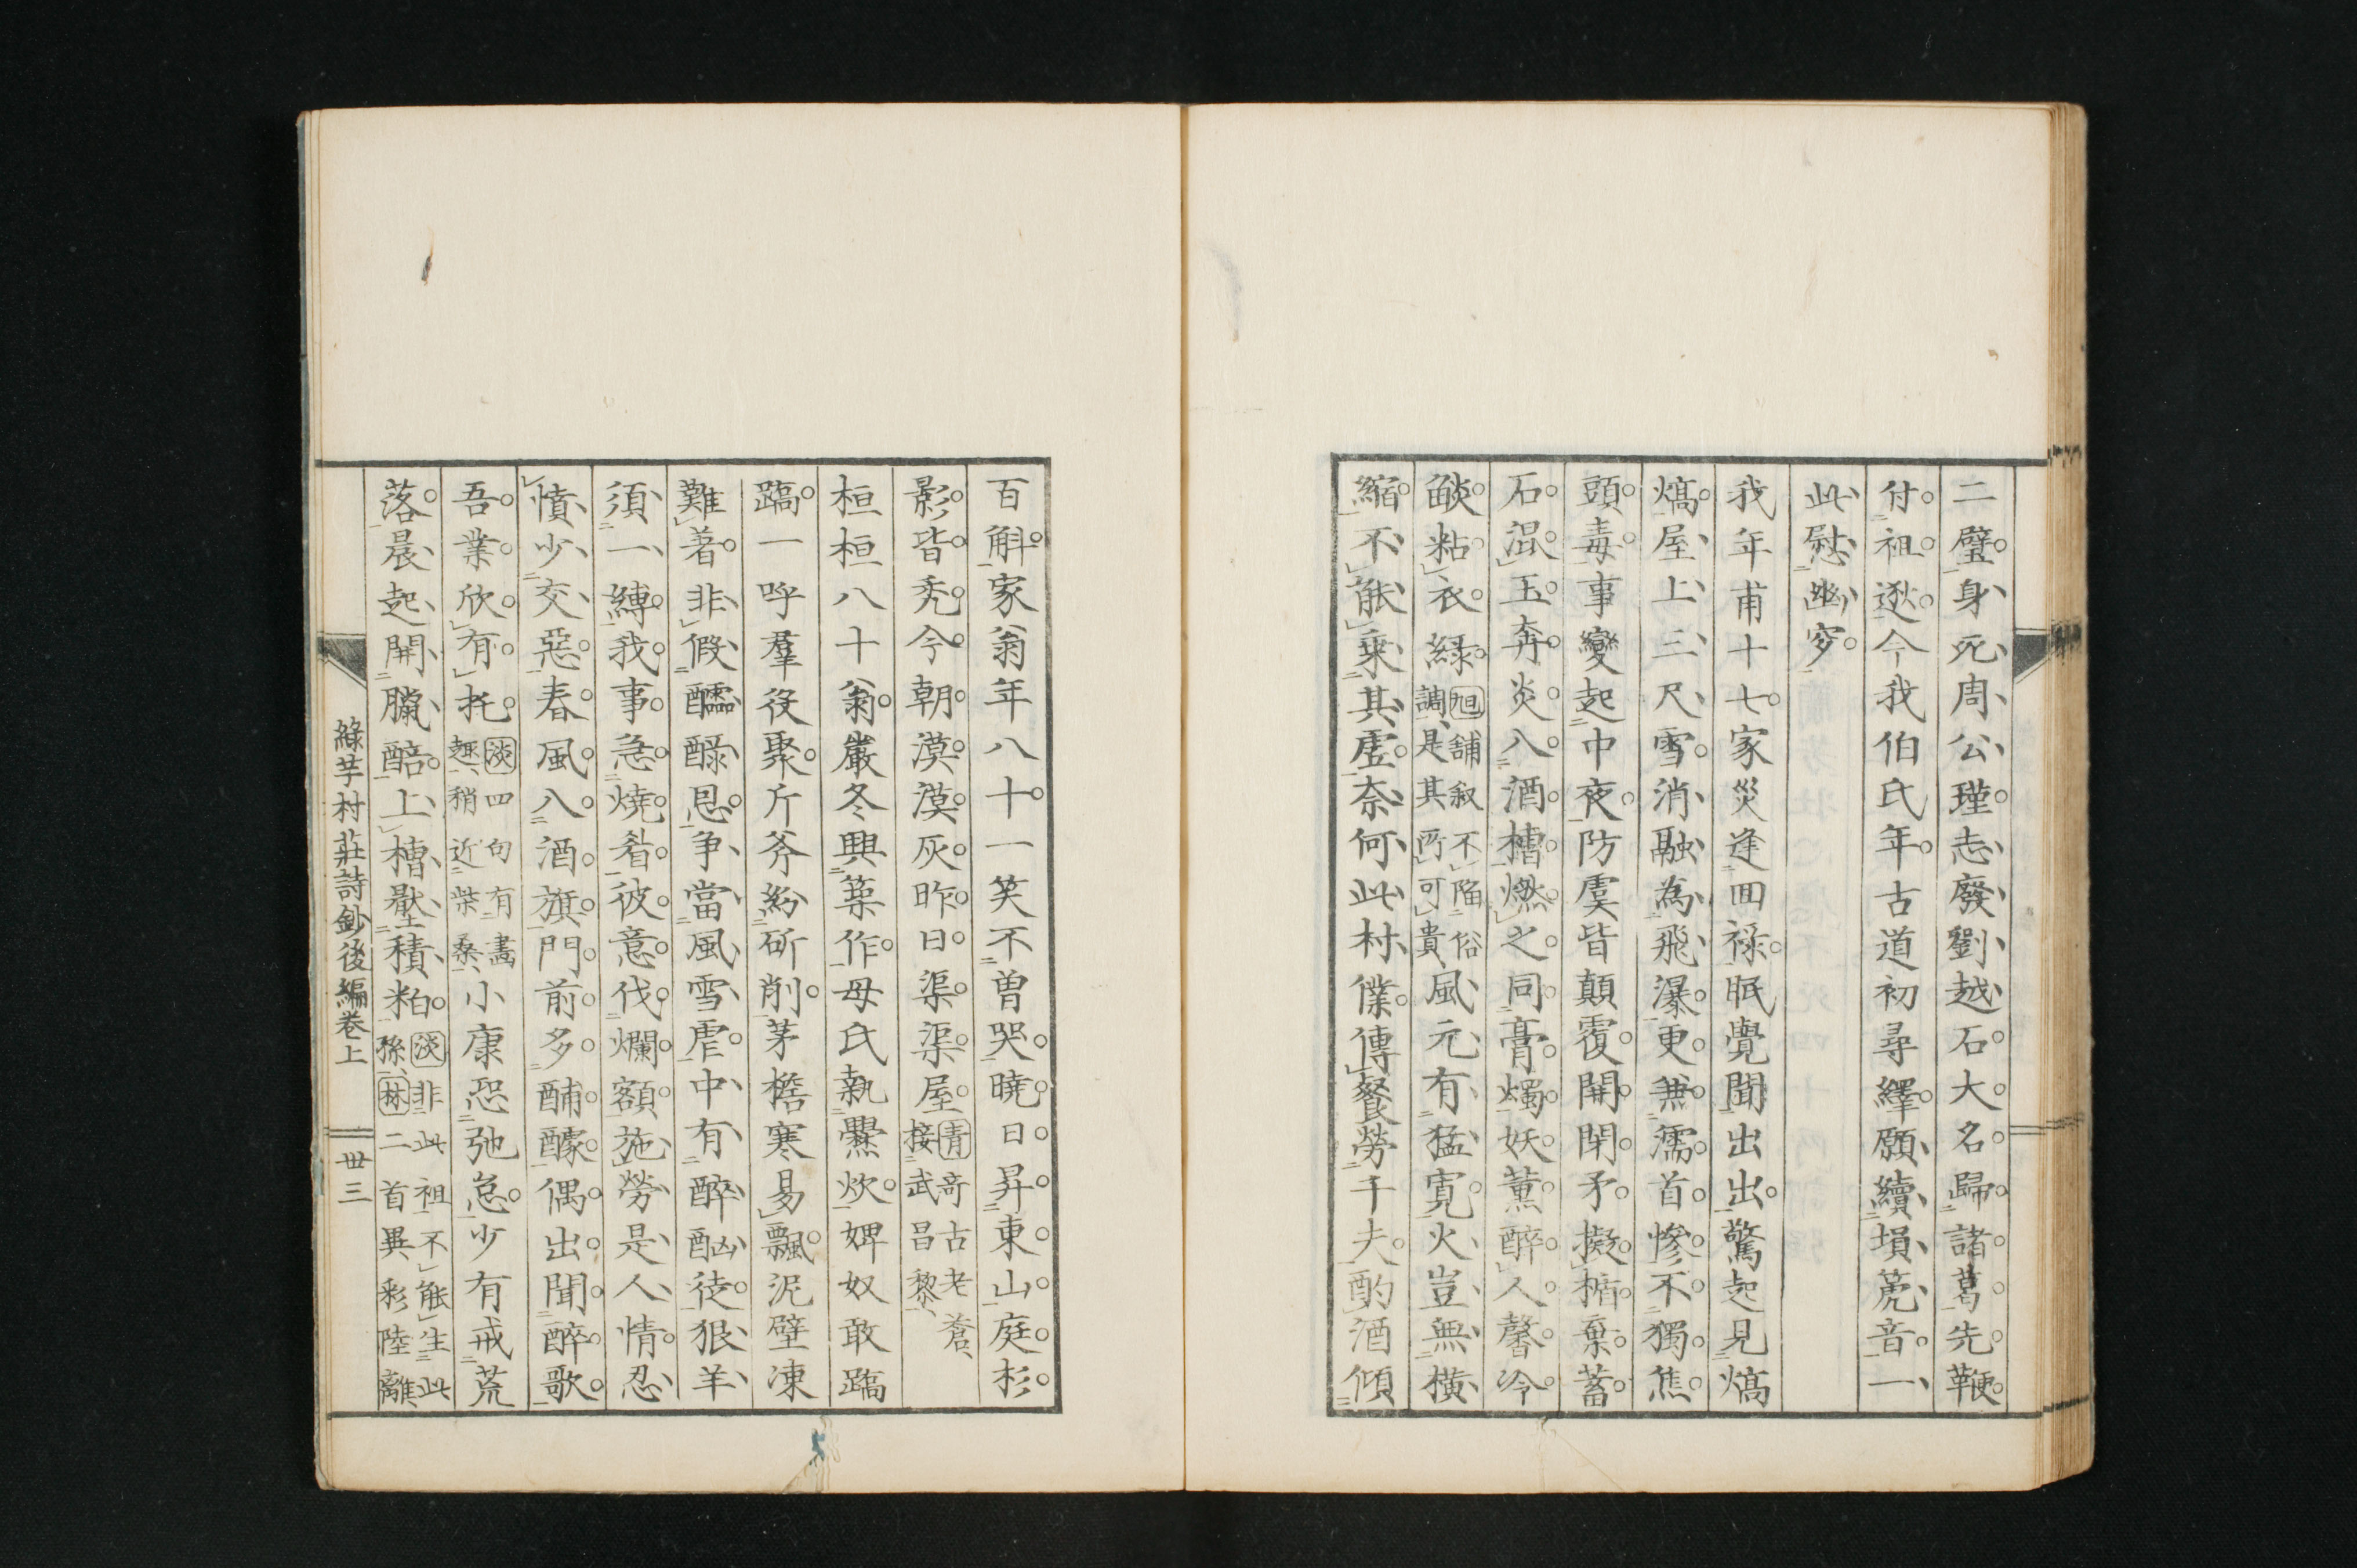 二璧身死周公瑾志廢劉越石大名歸諸葛先鞭
付祖逖今我伯氏年古道初尋繹願續塤箎音一
此慰幽穸
我年甫十七家災逢回祿眠覺聞出出驚起見熇
熇屋上三尺雪消融為飛瀑更兼濡首慘不獨焦
頭毒事變起中夜防虞皆顛覆開閉矛擬楯棄蓄
石混玉奔炎入酒槽燃之同膏燭妖薰醉人馨冷
燄粘衣綠旭舗叙不陥俗
調是其所可貴風元有猛寛火豈無橫
縮不能乗其虛奈何此村僕傳餐勞千夫酌酒傾
百斛家翁年八十一笑不曽哭曉日昇東山庭杉
影皆禿今朝漠漠灰昨日渠渠屋青竒古老蒼
接武昌黎
桓桓八十翁嚴冬興築作母氏執爨炊婢奴敢蹻
蹻一呼羣役聚斤斧紛斫削茅檐寒易飄泥壁凍
難著非假醽醁恩争當風雪虐中有醉酗徒狠羊
須一縛我事急燒眉彼意伐爛額施勞是人情忍
憤少交惡春風入酒旗門前多酺醵偶出聞醉歌
吾業欣有托淡四句有畵
趣稍近柴桑小康恐弛怠少有戒荒
落晨起開臘醅上槽墾積粕淡非此祖不能生此
孫林二首異彩陸離
綠芋村莊詩鈔後編卷上
丗三